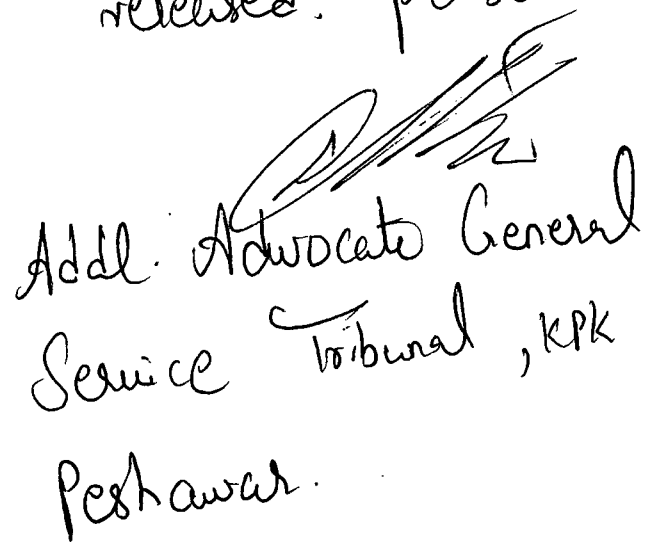 released.
Addl. Advocate General
Service Tribunal, KPK
Peshawar.